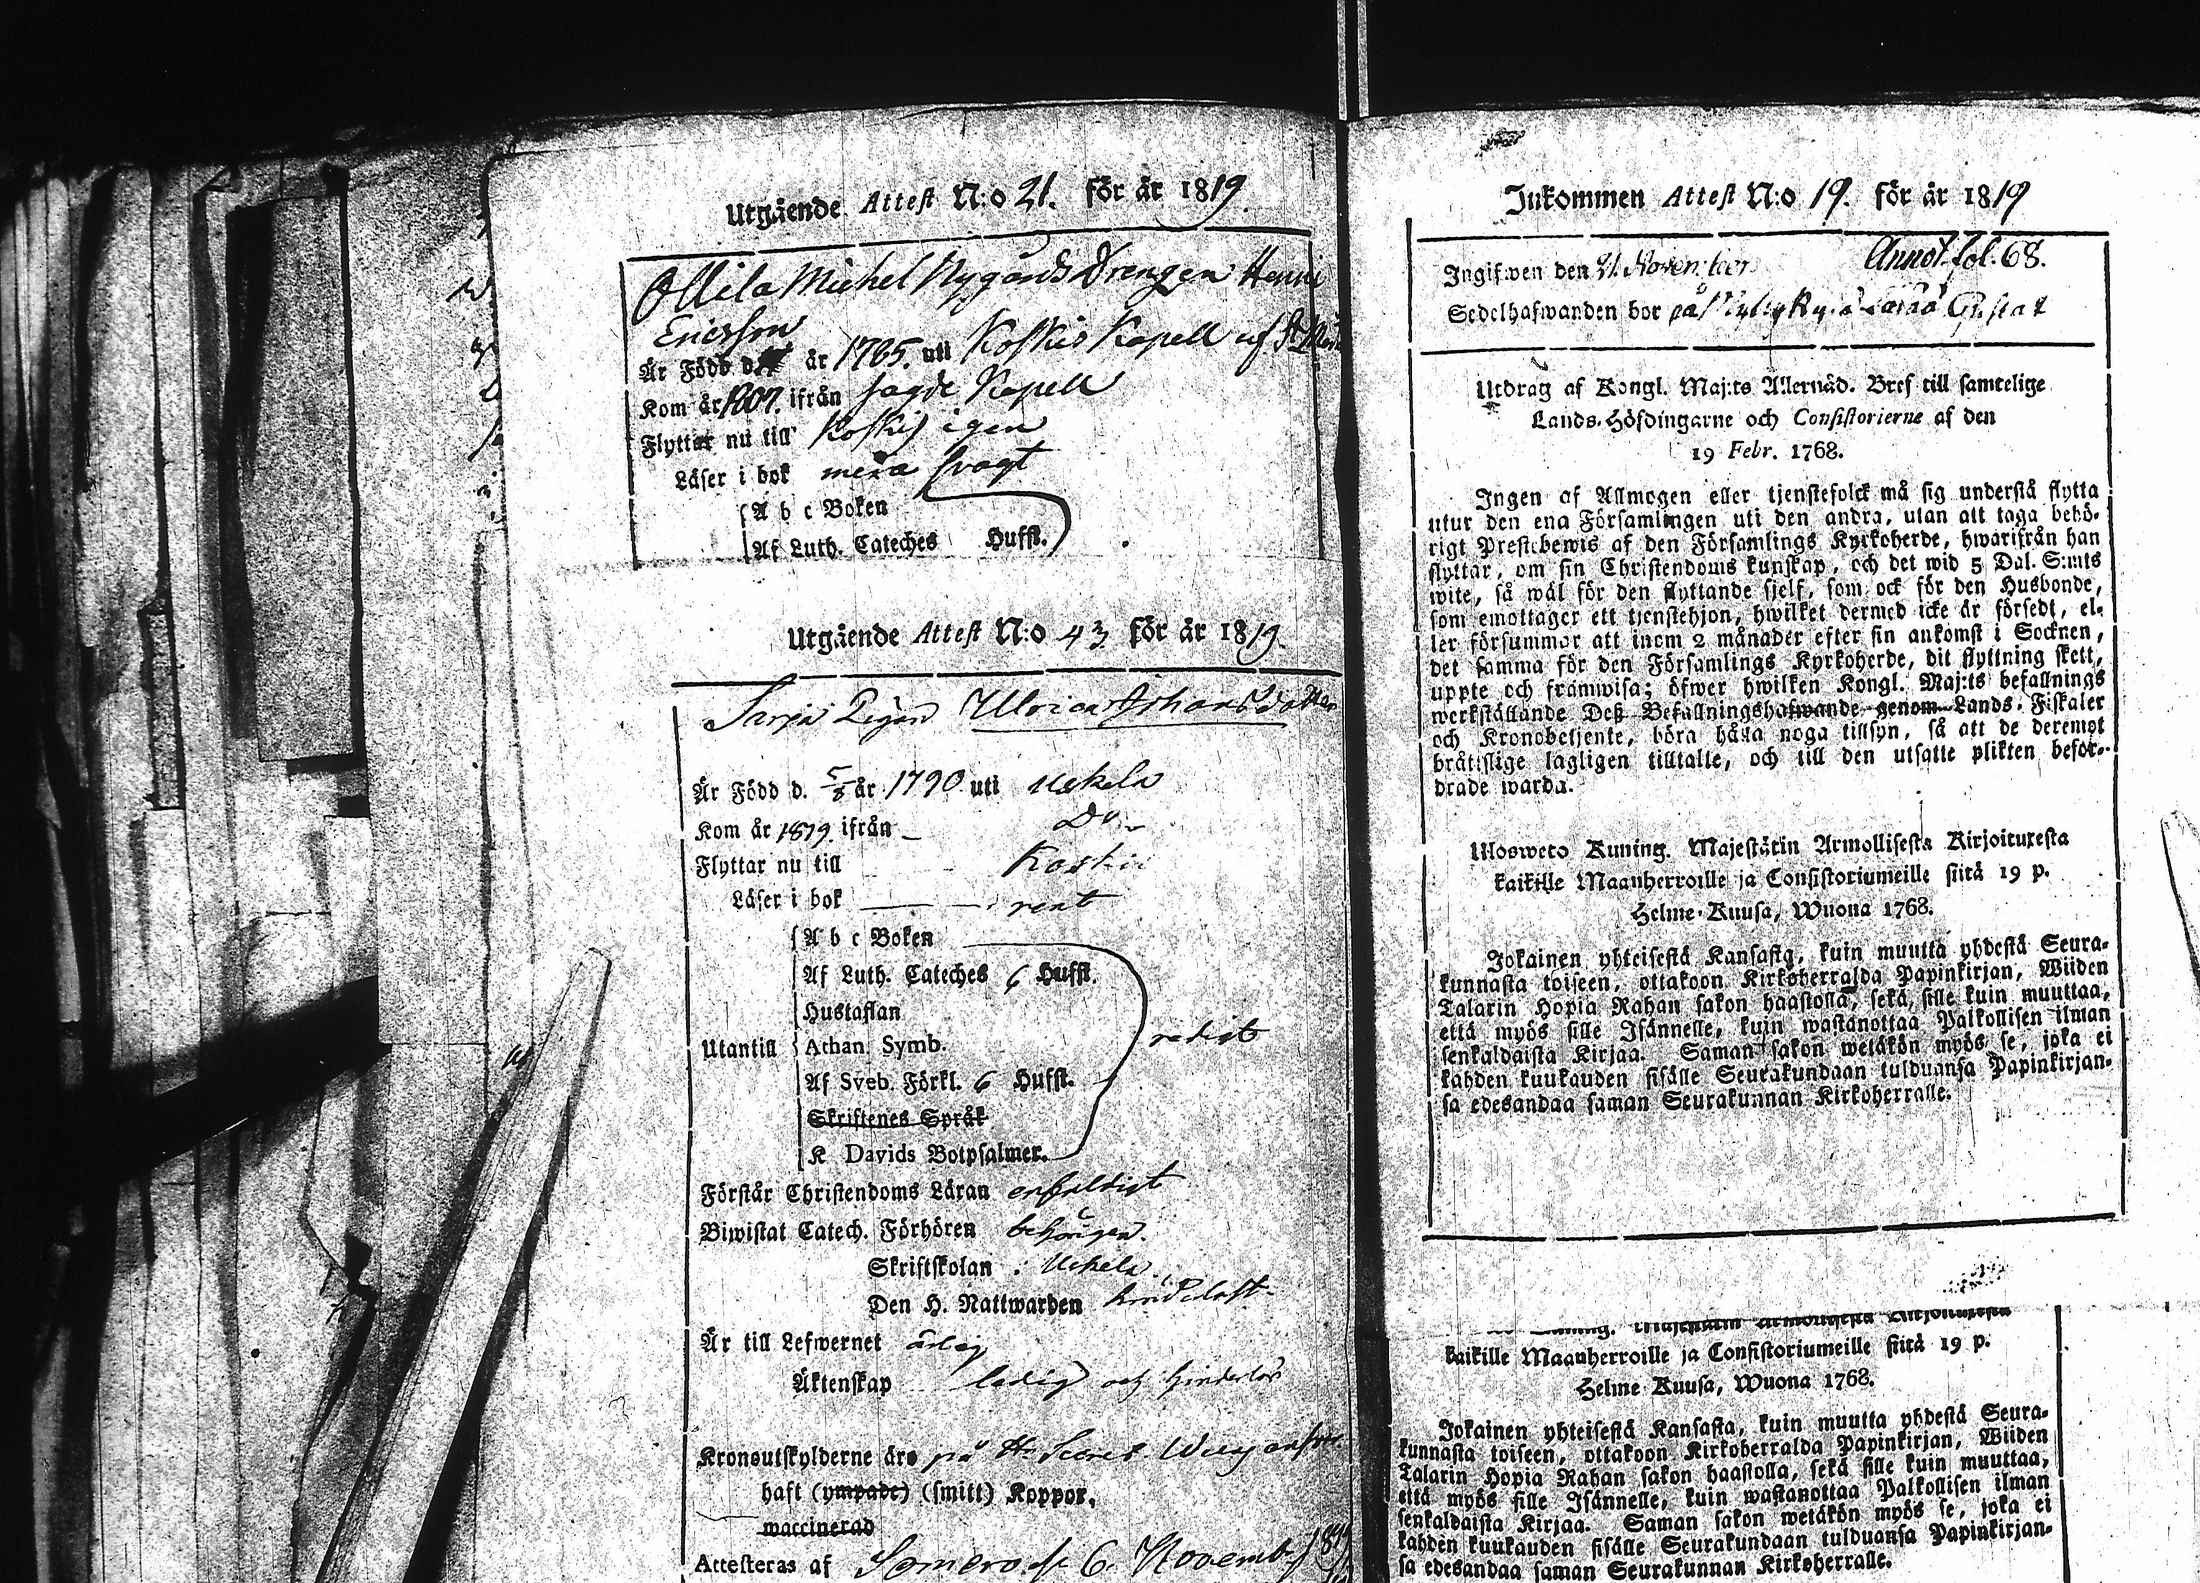 Utgående Attest N:o 21. för år 1819.
Ollila Michel Nygårds Drengen Henric
Ericsson
Är Född d. år 1785. uti Koskis Kapell af St
Kom år 1807. ifrån sagde Kapell
Flyttar nu till Koskis igen
Läser i bok mera svagt
A b c Boken
Af Luth. Cateches Hufst.
Utgående Attest N:o 43. för år 1819.
Sarja Pigan Ulrica Johansdotter
Är Född d. 5/8 år 1790 uti Uskela
Kom år 1819. ifrån D:o
Flyttar nu till Koskis
Läser i bok rent
A b c Boken
Af Luth. Cateches 6 Hufst.
Hustaflan
Utantill Athan. Symb. redigt
Af Sveb. Förkl. 6 Hufst.
Skriftenes Språk
K Davids Botpsalmer.
Förstår Christendoms Läran enfaldigt
Biwistat Catech. Förhören behörigen.
Skriftskolan i Uskela
Den H. Nattwarden
Är till Lefwernet ärlig
Äktenskap ledig och hinderlös
Kronoutskylderne äro på Hr Secret.
haft (ympade) (smitt) Koppor.
waccinerad
Attesteras af Somero d. 6. Novemb. 1819
Inkommen Attest N:o 19. för år 1819
Ingifwen den 21 November Annot. fol. 68.
Sedelhafwanden bor på
Utdrag af Kongl. Maj:ts Allernåd. Bref till samtelige
Lands-Höfdingarne och Consistorierne af den
19 Febr. 1768.
Ingen af Allmogen eller tjenstefolck må sig understå flytta
utur den ena Församlingen uti den andra, utan att taga behö-
rigt Prestebewis af den Församlings Kyrkoherde, hwarifrån han
flyttar, om sin Christendoms kunskap, och det wid 5 Dal. S:mts
wite, så wäl för den flyttande sjelf, som ock för den Husbonde,
som emottager ett tjenstehjon, hwilket dermed icke är försedt, el-
ler försummar att inom 2 månader efter sin ankomst i Socknen,
det samma för den Församlings Kyrkoherde, dit flyttning skett,
uppte och framwisa; öfwer hwilken Kongl. Maj:ts befallnings
werkställande Deß Befallningshafwande genom Lands-Fiskaler
och Kronobetjente, böra hålla noga tillsyn, så att de deremot
bråttslige lagligen tilltalte, och till den utsatte plikten befor-
drade warda.
Ulosweto Kuning. Majestätin Armollisesta Kirjoituxesta
kaikille Maanherroille ja Consistoriumeille siitä 19 p.
Helme-Kuusa, Wuona 1768.
Jokainen yhteisestä Kansasta, kuin muutta yhdestä Seura-
kunnasta toiseen, ottakoon Kirkoherralda Papinkirjan, Wiiden
Talarin Hopia Rahan sakon haastolla, sekä sille kuin muuttaa,
että myös sille Isännelle, kuin wastanottaa Palkollisen ilman
senkaldaista Kirjaa. Saman sakon wetäkön myös se, joka ei
kahden kuukauden sisälle Seurakundaan tulduansa Papinkirjan-
sa edesandaa saman Seurakunnan Kirkoherralle.
kaikille Maanherroille ja Consistoriumeille siitä 19 p.
Helme Kuusa, Wuona 1768.
Jokainen yhteisestä Kansasta, kuin muutta yhdestä Seura-
kunnasta toiseen, ottakoon Kirkoherralda Papinkirjan, Wiiden
Talarin Hopia Rahan sakon haastolla, sekä sille kuin muuttaa,
että myös sille Isännelle, kuin wastanottaa Palkollisen ilman
senkaldaista Kirjaa. Saman sakon wetäkön myös se, joka ei
kahden kuukauden sisälle Seurakundaan tulduansa Papinkirjan-
sa edesandaa saman Seurakunnan Kirkoherralle.